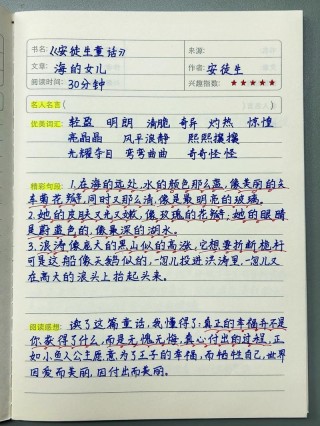 书名:《安徒生童话》 来源:
文章: 海的女儿 作者: 安徒生
阅读时间: 30分钟 兴趣指数: ★★★★★
名人名言( )
优美词汇: 轻盈 明朗 清脆 奇异 灼热 惊惶
亮晶晶 风平浪静 熙熙攘攘
光耀夺目 弯弯曲曲 奇奇怪怪
精彩句段: 1.在海的远处,水的颜色那么蓝,像美丽的矢
车菊花瓣,同时又那么清,像是最明亮的玻璃。
2.她的皮肤又光又嫩,像玫瑰的花瓣,她的眼睛
是蔚蓝色的,像最深的湖水。
3.浪涛像庞大的黑山似的高涨,它想要折断桅杆
可是这船像天鹅似的,一忽儿投进洪涛里,一忽儿又
在高大的浪头上抬起头来。
阅读感想: 读了这篇童话,我懂得了:真正的幸福并不是
你获得了什么,而是无愧无悔,真心付出的过程,正
如小鱼人公主愿意为了王子的幸福,而牺牲自己,世界
因爱而美丽,因付出而美丽。